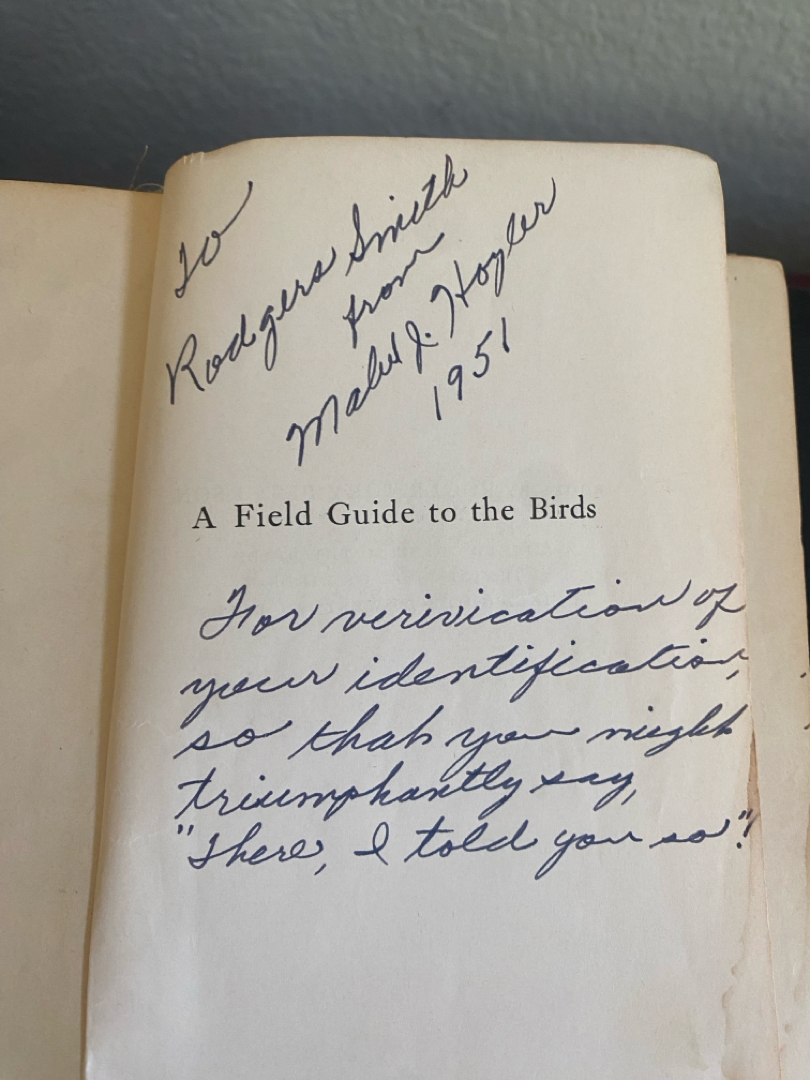 To
Rodgers Smith
from
Mabel J. Hoyler
1951
A Field Guide to the Birds
For verivication of
your identification,
so that you might
triumphantly say,
"There, I told you so"!